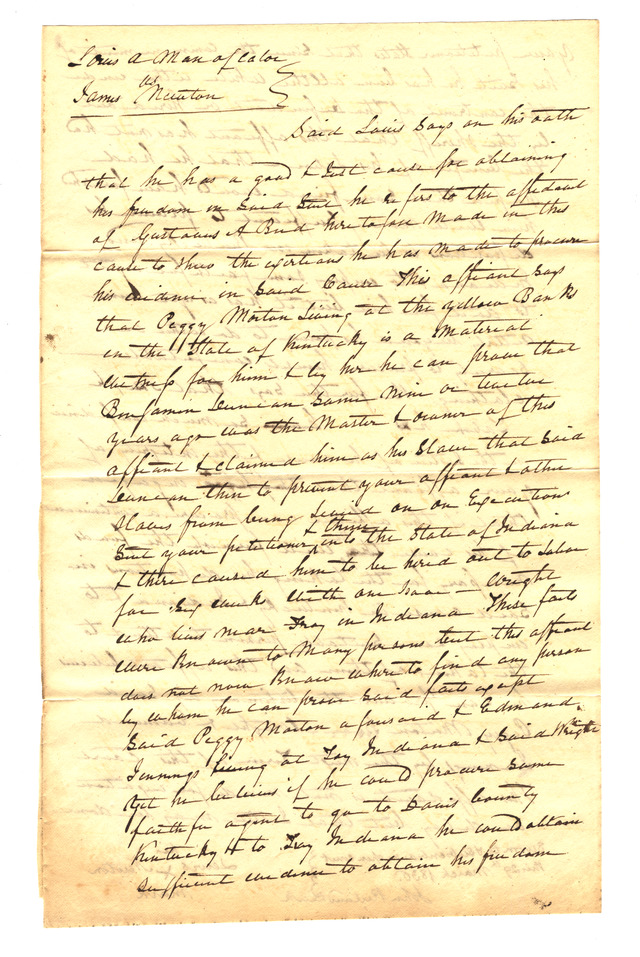 Louis a Man of Color
vs
James Newton
Said Louis Says on his oath
that he has a good & Just cause for obtaining
his freedom in Said Suit he refers to the affidavit
of Gustavus A Bird heretofore Made in this
cause to shew the exertions he has Made to procure
his evidence in Said Cause This affiant Says
that Peggy Morton Living at the yellow Banks
in the State of Kentucky is a Material
witness for him & by her he can prove that
Benjamin Duncan Some Nine or twelve
years ago was the Master & owner of this
affiant & claimed him as his Slave that Said
Duncan then to prevent your affiant & other
Slaves from being Levied on on Executions
Sent your petitioner & them into the State of Indiana
& there caused him to be hired out to Labor
for Six weeks with one Isaac Wright
who lives near Troy in Indiana These facts
were Known to Many persons but this affiant
does not now Know where to find any person
by whom he can prove Said facts except
Said Peggy Morton aforesaid & Edmand
Jennings living at Troy Indiana & Said Wright
Yet he believes if he could procure Some
faithful agent to go to Davis County
Kentucky & to Troy Indiana he could obtain
Sufficient evidence to obtain his freedom